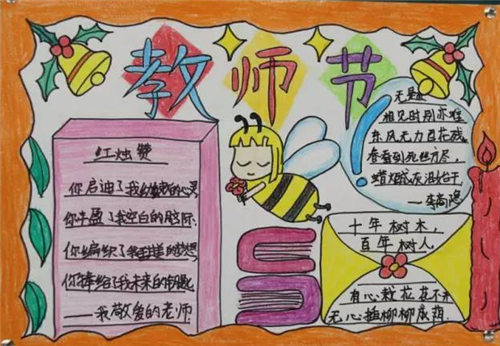 教师节
红烛赞
你启迪了我幼稚的心灵
你丰盈了我空白的脑际
你编织了我的梦想
你捧给了我未来的
——我敬爱的老师
无题
相见时别亦难
东风无力百花残,
春蚕到死丝方尽,
蜡炬成灰泪始干,
——李商隐
十年树木,
百年树人
有心栽花花不开
无心插柳柳成荫.